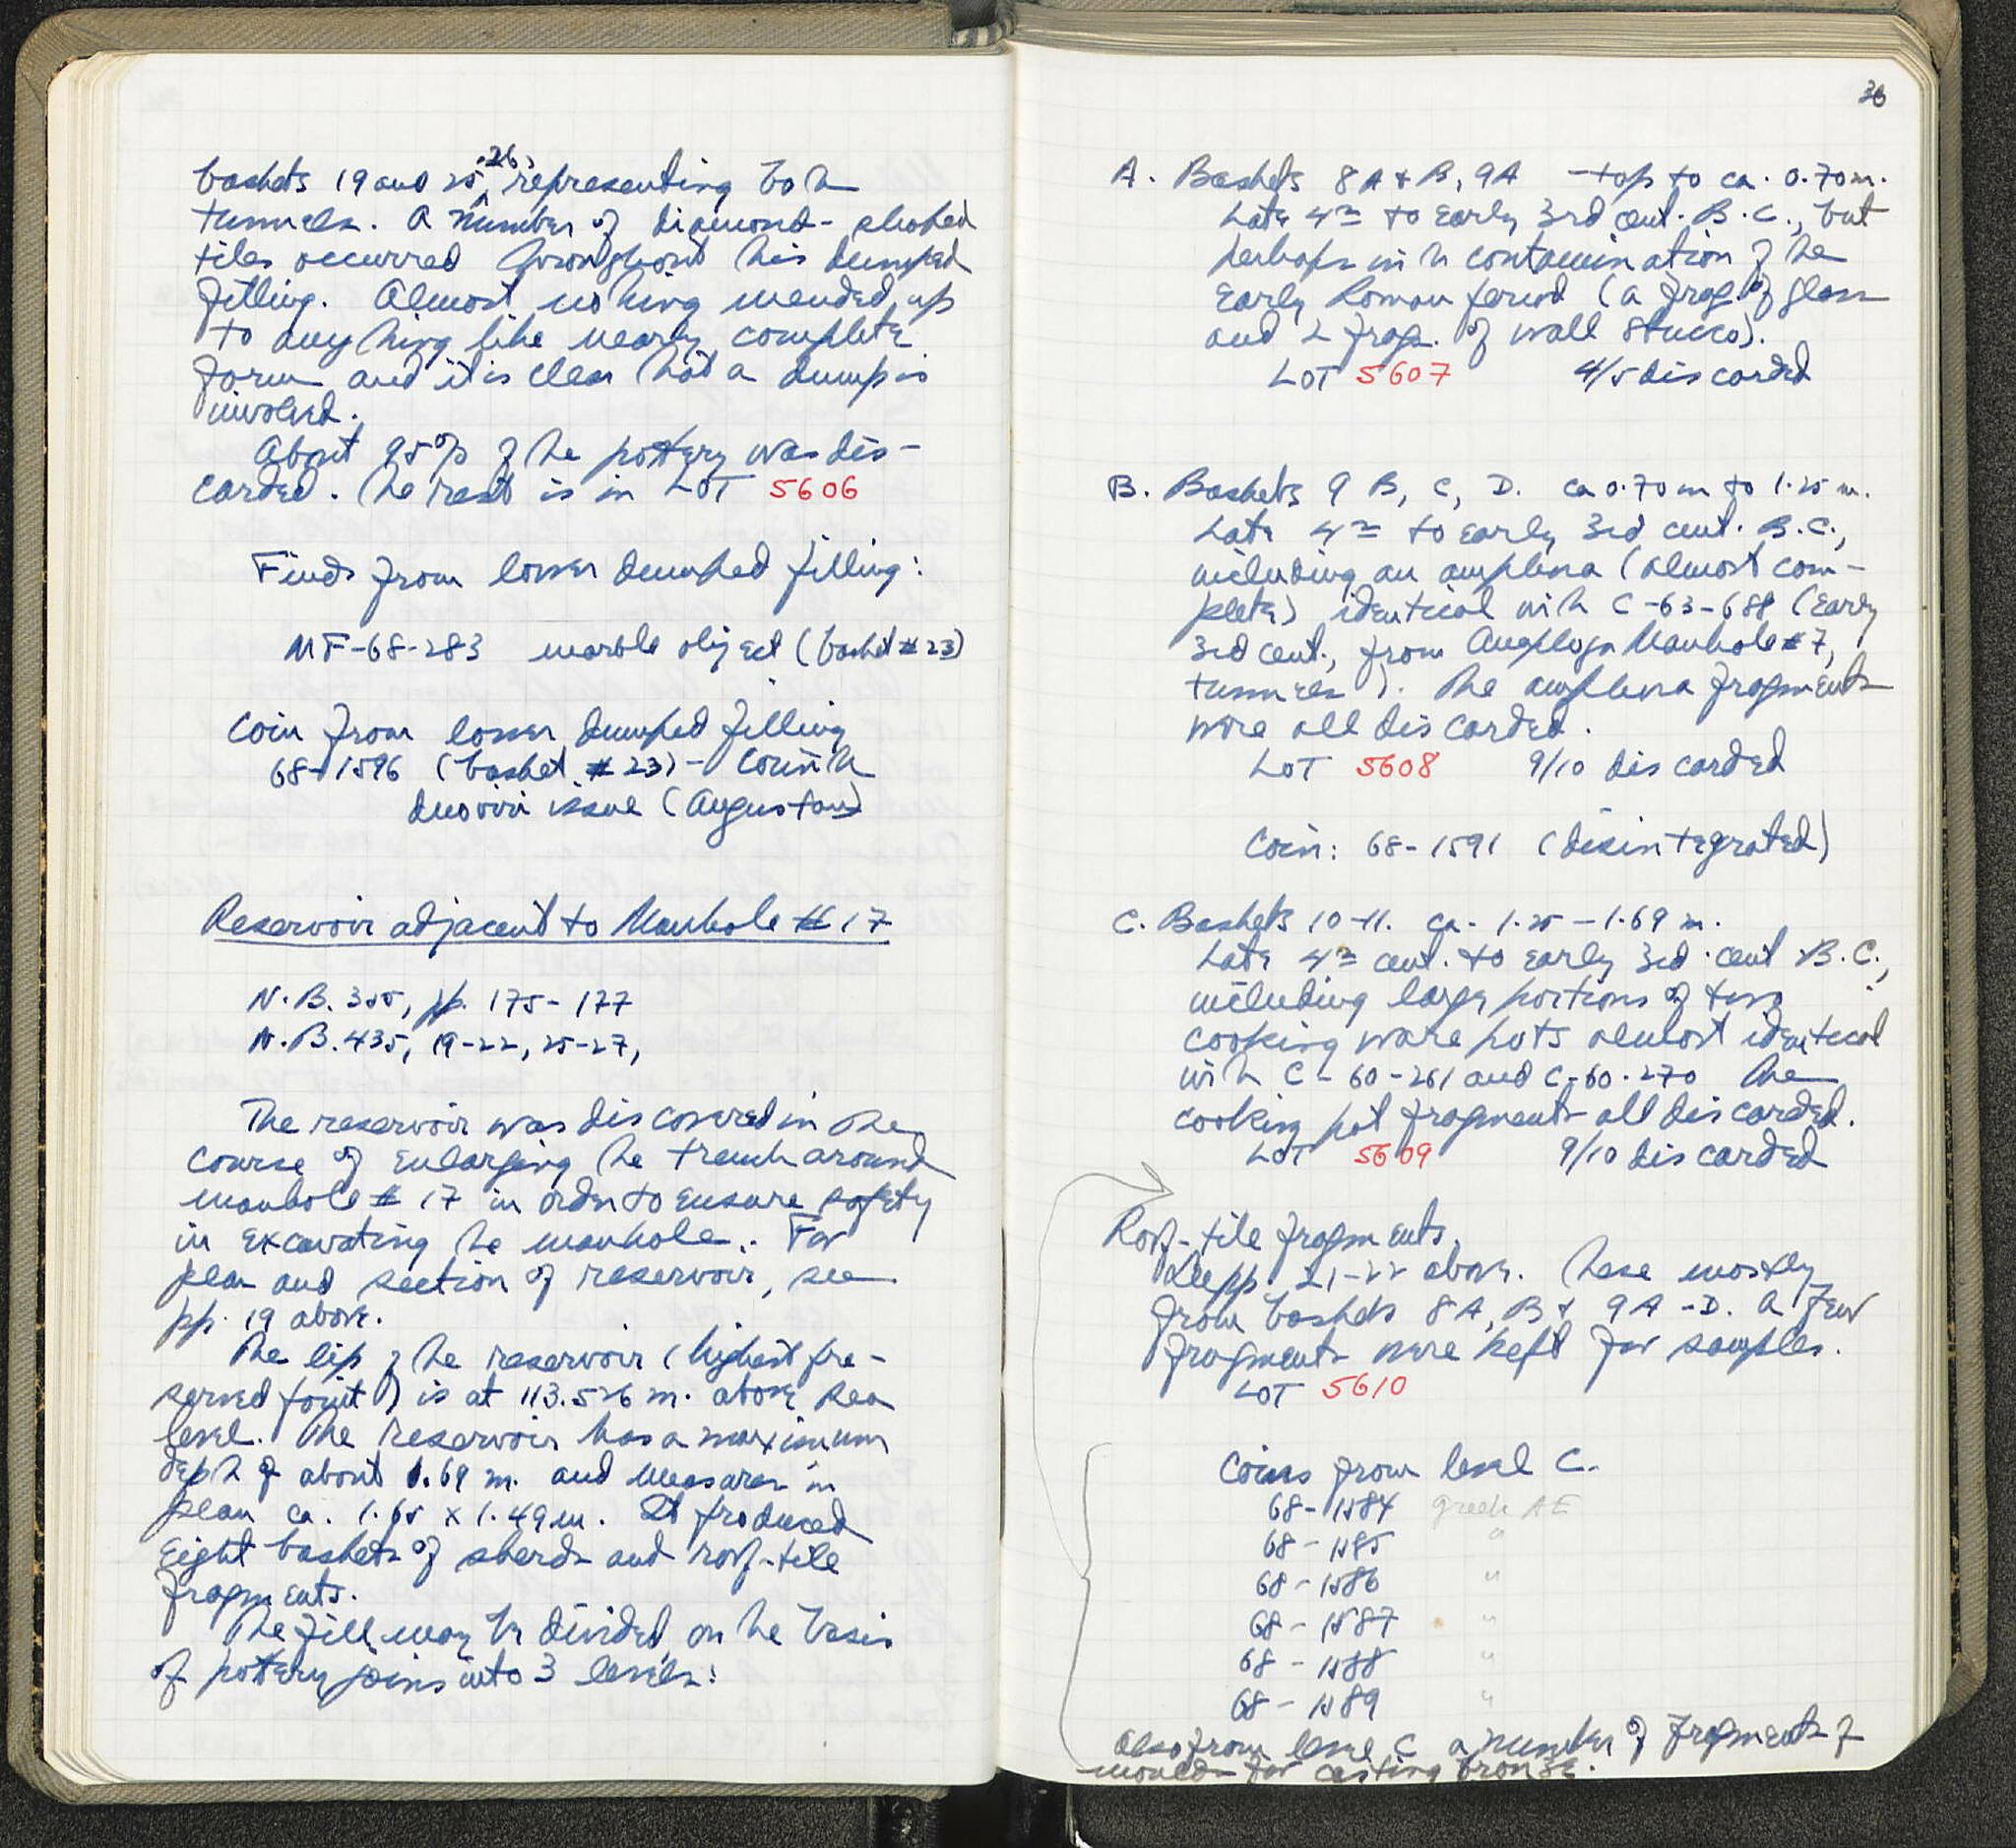 baskets 19 and 25, 26, representing both
tunnels. A number of diamond-shaped
tiles occurred throughout this dumped
filling. Almost nothing mended up
to anything like nearly complete
form and it is clear that a dump is
involved.
About 95% of the pottery was dis-
carded. The rest is in LOT 5606
Finds from lower dumped filling:
MF-68-283 marble object (basket #23)
Coin from lower dumped filling
68-1596 (basket #23) - Corinth
duoviri issue (Augustan)
Reservoir adjacent to Manhole #17
N.B. 355, pp. 175-177
N.B. 435, 19-22, 25-27,
The reservoir was discovered in the
course of enlarging the trench around
manhole #17 in order to ensure safety
in excavating the manhole. For
plan and section of reservoir, see
pp. 19 above.
The lip of the reservoir (highest pre-
served point) is at 113.526 m. above sea
level. The reservoir has a maximum
depth of about 1.69 m. and measures in
plan ca. 1.65 x 1.49 m. It produced
eight baskets of sherds and roof-tile
fragments.
The fill may be divided on the basis
of pottery joins into 3 levels:
36
A. Baskets 8A & B, 9A - top to ca. 0.70 m.
Late 4th to early 3rd cent. B.C., but
perhaps with contamination of the
early Roman period (a frag. of glass
and 2 frags. of wall stucco).
LOT 5607 4/5 discarded
B. Baskets 9 B, C, D. ca 0.70 m to 1.25 m.
Late 4th to early 3rd cent. B.C.,
including an amphora (almost com-
plete) identical with C-63-688 (early
3rd cent., from Anaploga Manhole #7,
tunnels). The amphora fragments
were all discarded.
LOT 5608 9/10 discarded
Coin: 68-1591 (disintegrated)
C. Baskets 10-11. ca. 1.25 - 1.69 m.
Late 4th cent. to early 3rd cent B.C.,
including large portions of two
cooking ware pots almost identical
with C-60-261 and C-60-270 The
cooking pot fragments all discarded.
LOT 5609 9/10 discarded
Roof-tile fragments.
See pp. 21-22 above. These mostly
from baskets 8A, B & 9A-D. A few
fragments were kept for samples.
LOT 5610
Coins from level C.
68-1584 Greek AE
68-1585 "
68-1586 "
68-1587 "
68-1588 "
68-1589 "
Also from level C a number of fragments of
moulds for casting bronze.